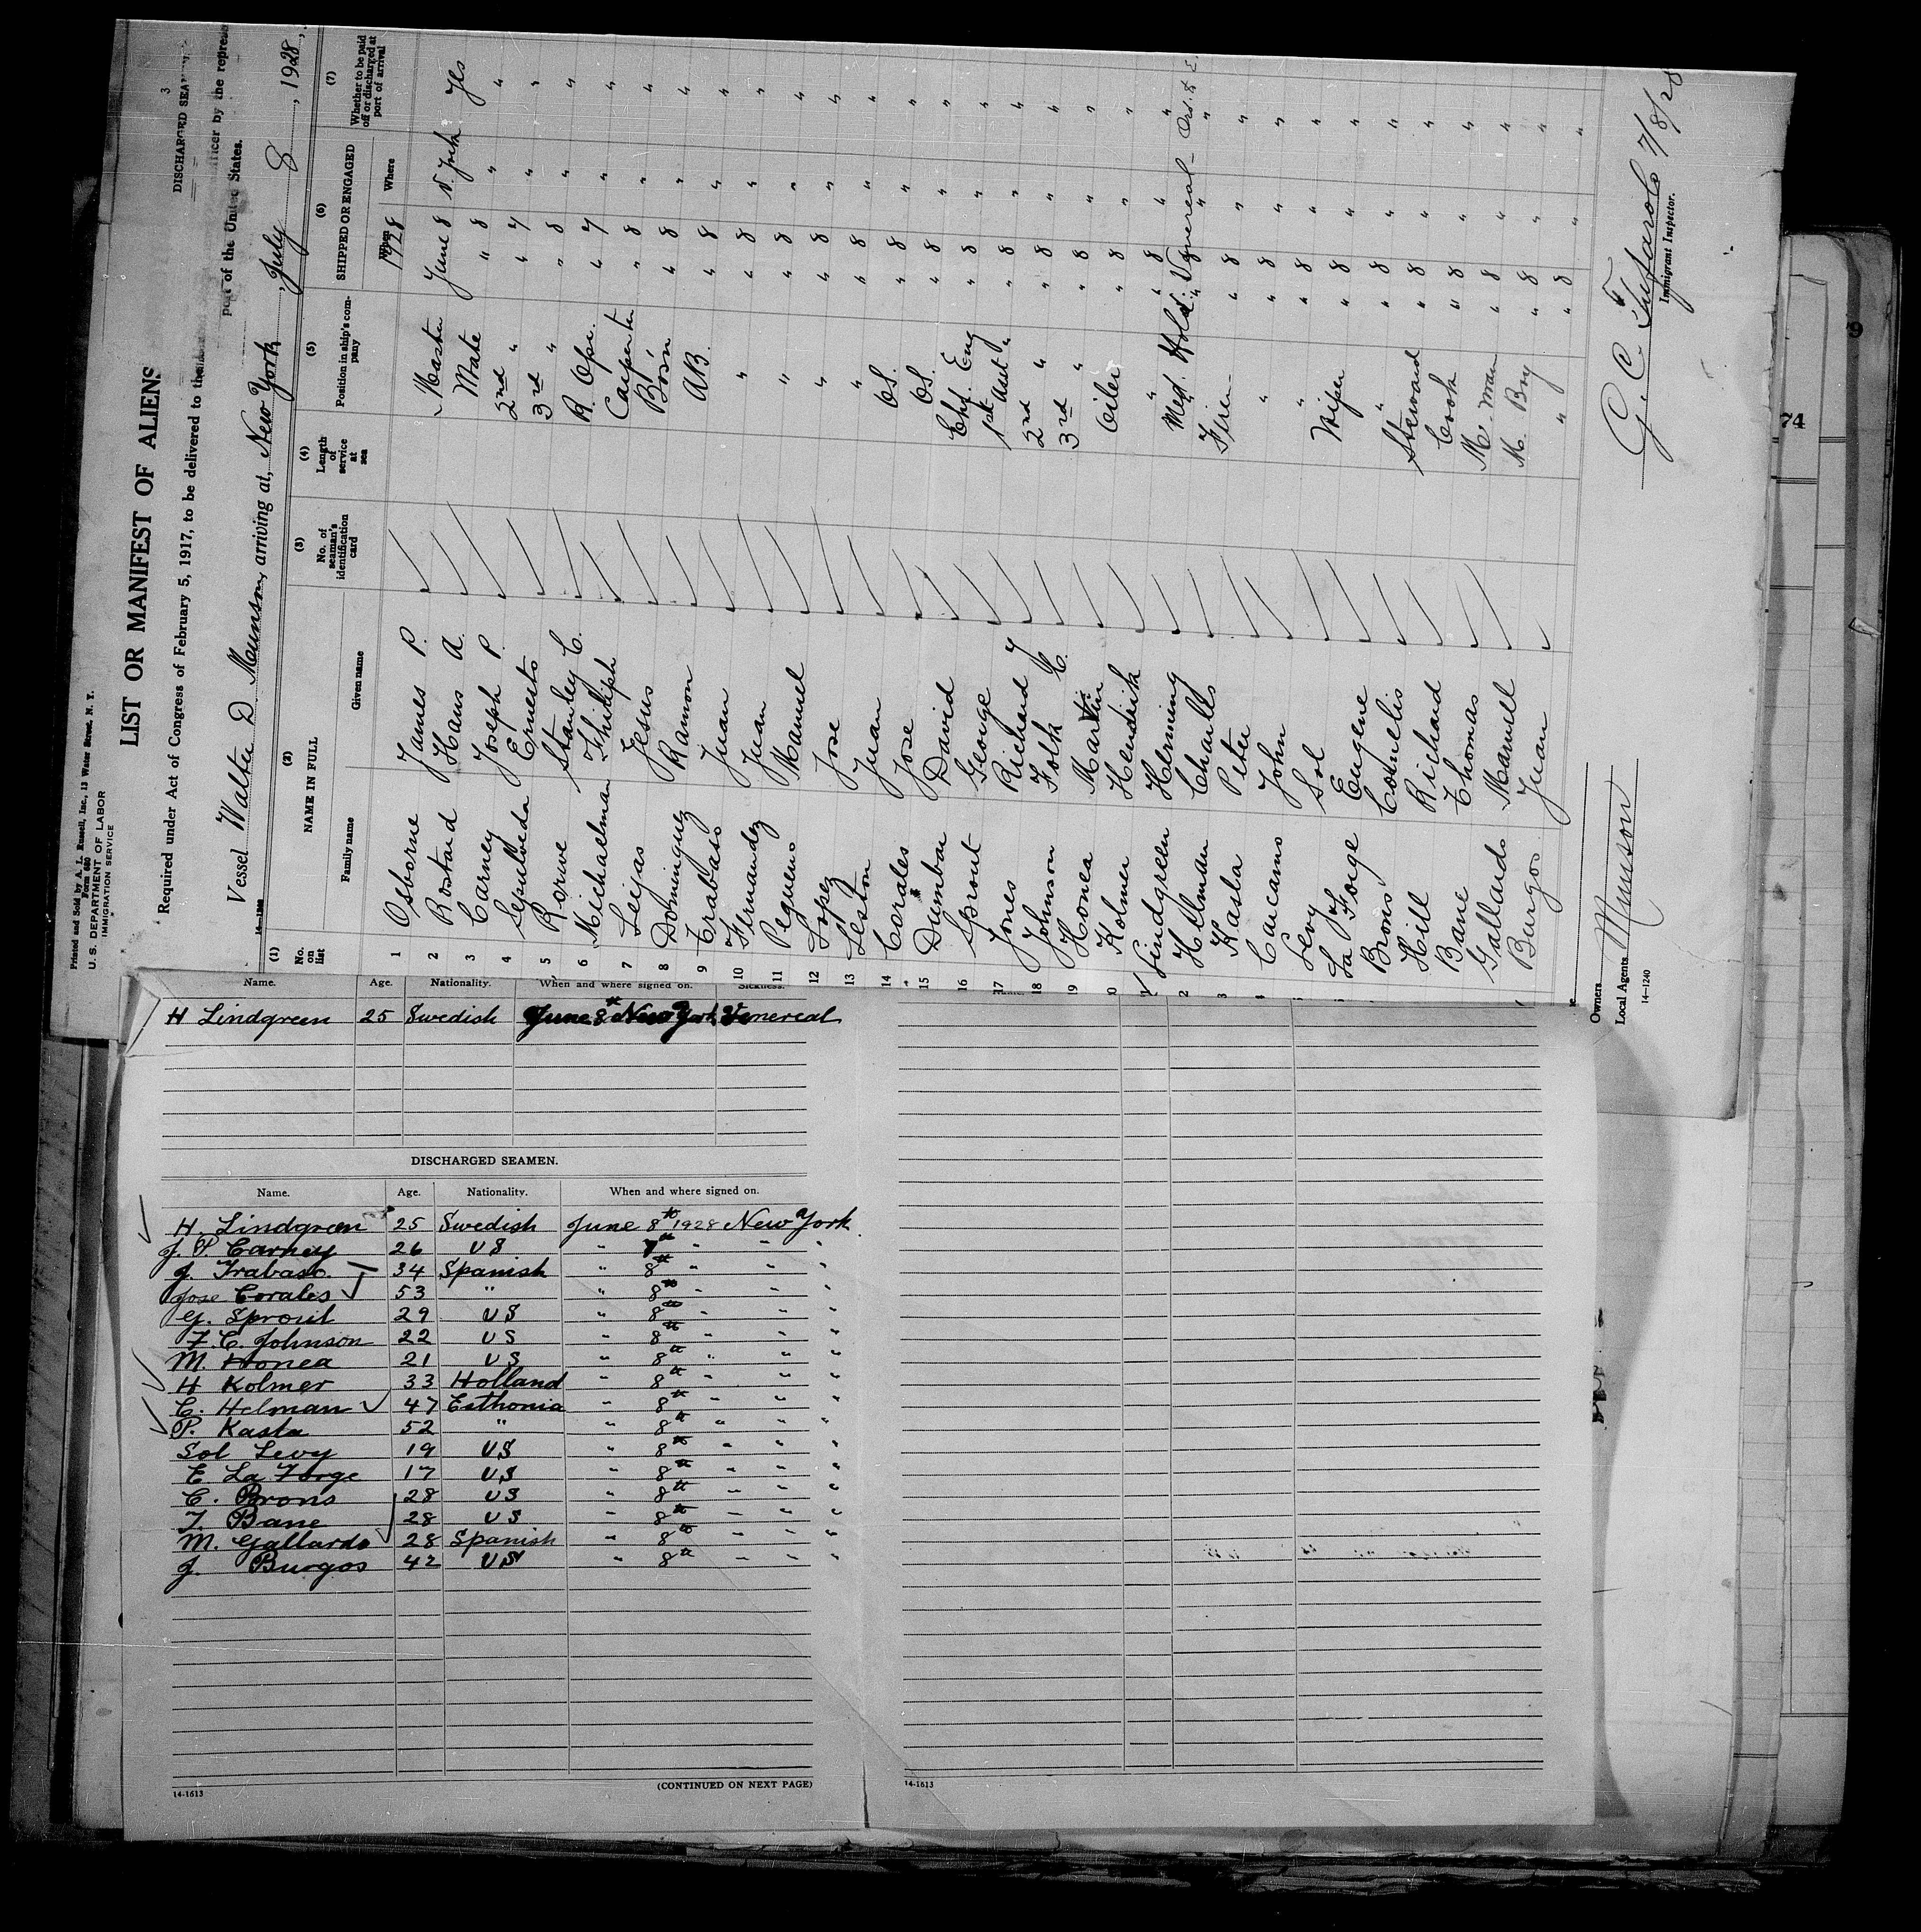 Printed and Sold by A. L. Russell, Inc., 13 Water Street, N. Y.
Form 680
U. S. DEPARTMENT OF LABOR
IMMIGRATION SERVICE
LIST OR MANIFEST OF ALIENS
Required under Act of Congress of February 5, 1917, to be delivered to the
officer by the represe
port of the United States.
Vessel Walter D Munson, arriving at, New York, July 8, 1928,
3
DISCHARGED SEA
(1) (2) (3) (4) (5) (6) (7)
No. on list NAME IN FULL No. of seaman's identification card Length of service at sea Position in ship's company SHIPPED OR ENGAGED Whether to be paid off or discharged at port of arrival
Family name Given name When Where
1928
1 Osborne James P. Master June 8 N. York Yes
2 Bostard Hans A. Mate " 8 " "
3 Carney Joseph P. 2nd " " 7 " "
4 Sepulveda Ernesto 3rd " " 8 " "
5 Rorwe Stanley C. R. Opr. " 7 " "
6 Michaelman Philiph Carpenter " 8 " "
7 Leijas Jesus Bos'n " 8 " "
8 Dominguez Ramon AB. " 8 " "
9 Trabaso Juan " " 8 " "
10 Fernandez Juan " " 8 " "
11 Pequeno Manuel " " 8 " "
12 Lopez Jose " " 8 " "
13 Leston Juan OS. " 8 " "
14 Corales Jose OS. " 8 " "
15 Dumbar David Chf. Eng " 8 " "
16 Sprout George 1st Asst " " 8 " "
17 Jones Richard J 2nd " " 8 " "
18 Johnson Folk C. 3rd " " 8 " "
19 Honea Martin Oiler " 8 " "
0 Kolmer Hendrik " " 8 " "
1 Lindgreen Helmining " Med. Hold: Venereal - Ord. & E.
2 Hellman Charles Firem " 8 " "
3 Kasla Peter " " 8 " "
4 Cucans John " " 8 " "
Levy Sol Wiper " 8 " "
La Forge Eugene " " 8 " "
Brons Cornelis Steward " 8 " "
Hill Richard Cook " 8 " "
Bane Thomas M. man " 8 " "
Gallardo Manuel M. Boy " 8 " "
Burgos Juan " " 8 " "
Owners
Local Agents Munson
14—1240
G. C. Tufarolo 7/8/28
Immigrant Inspector.
Name. Age. Nationality. When and where signed on. Sickness.
H Lindgreen 25 Swedish June 8th New York Venereal
DISCHARGED SEAMEN.
Name. Age. Nationality. When and where signed on.
H. Lindgreen 25 Swedish June 8th 1928 New York
J. P. Carney 26 US " 7th " " "
J. Trabaso 34 Spanish " 8th " " "
Jose Corales 53 " " 8th " " "
G. Sprout 29 US " 8th " " "
F. C. Johnson 22 US " 8th " " "
M. Honea 21 US " 8th " " "
H Kolmer 33 Holland " 8th " " "
C. Helman 47 Esthonia " 8th " " "
P. Kasta 52 " " 8th " " "
Sol Levy 19 US " 8th " " "
E. La Forge 17 US " 8th " " "
C. Brons 28 US " 8th " " "
T. Bane 28 US " 8th " " "
M. Gallardo 28 Spanish " 8th " " "
J. Burgos 42 US " 8th " " "
14-1613
(CONTINUED ON NEXT PAGE)
14-1613
74